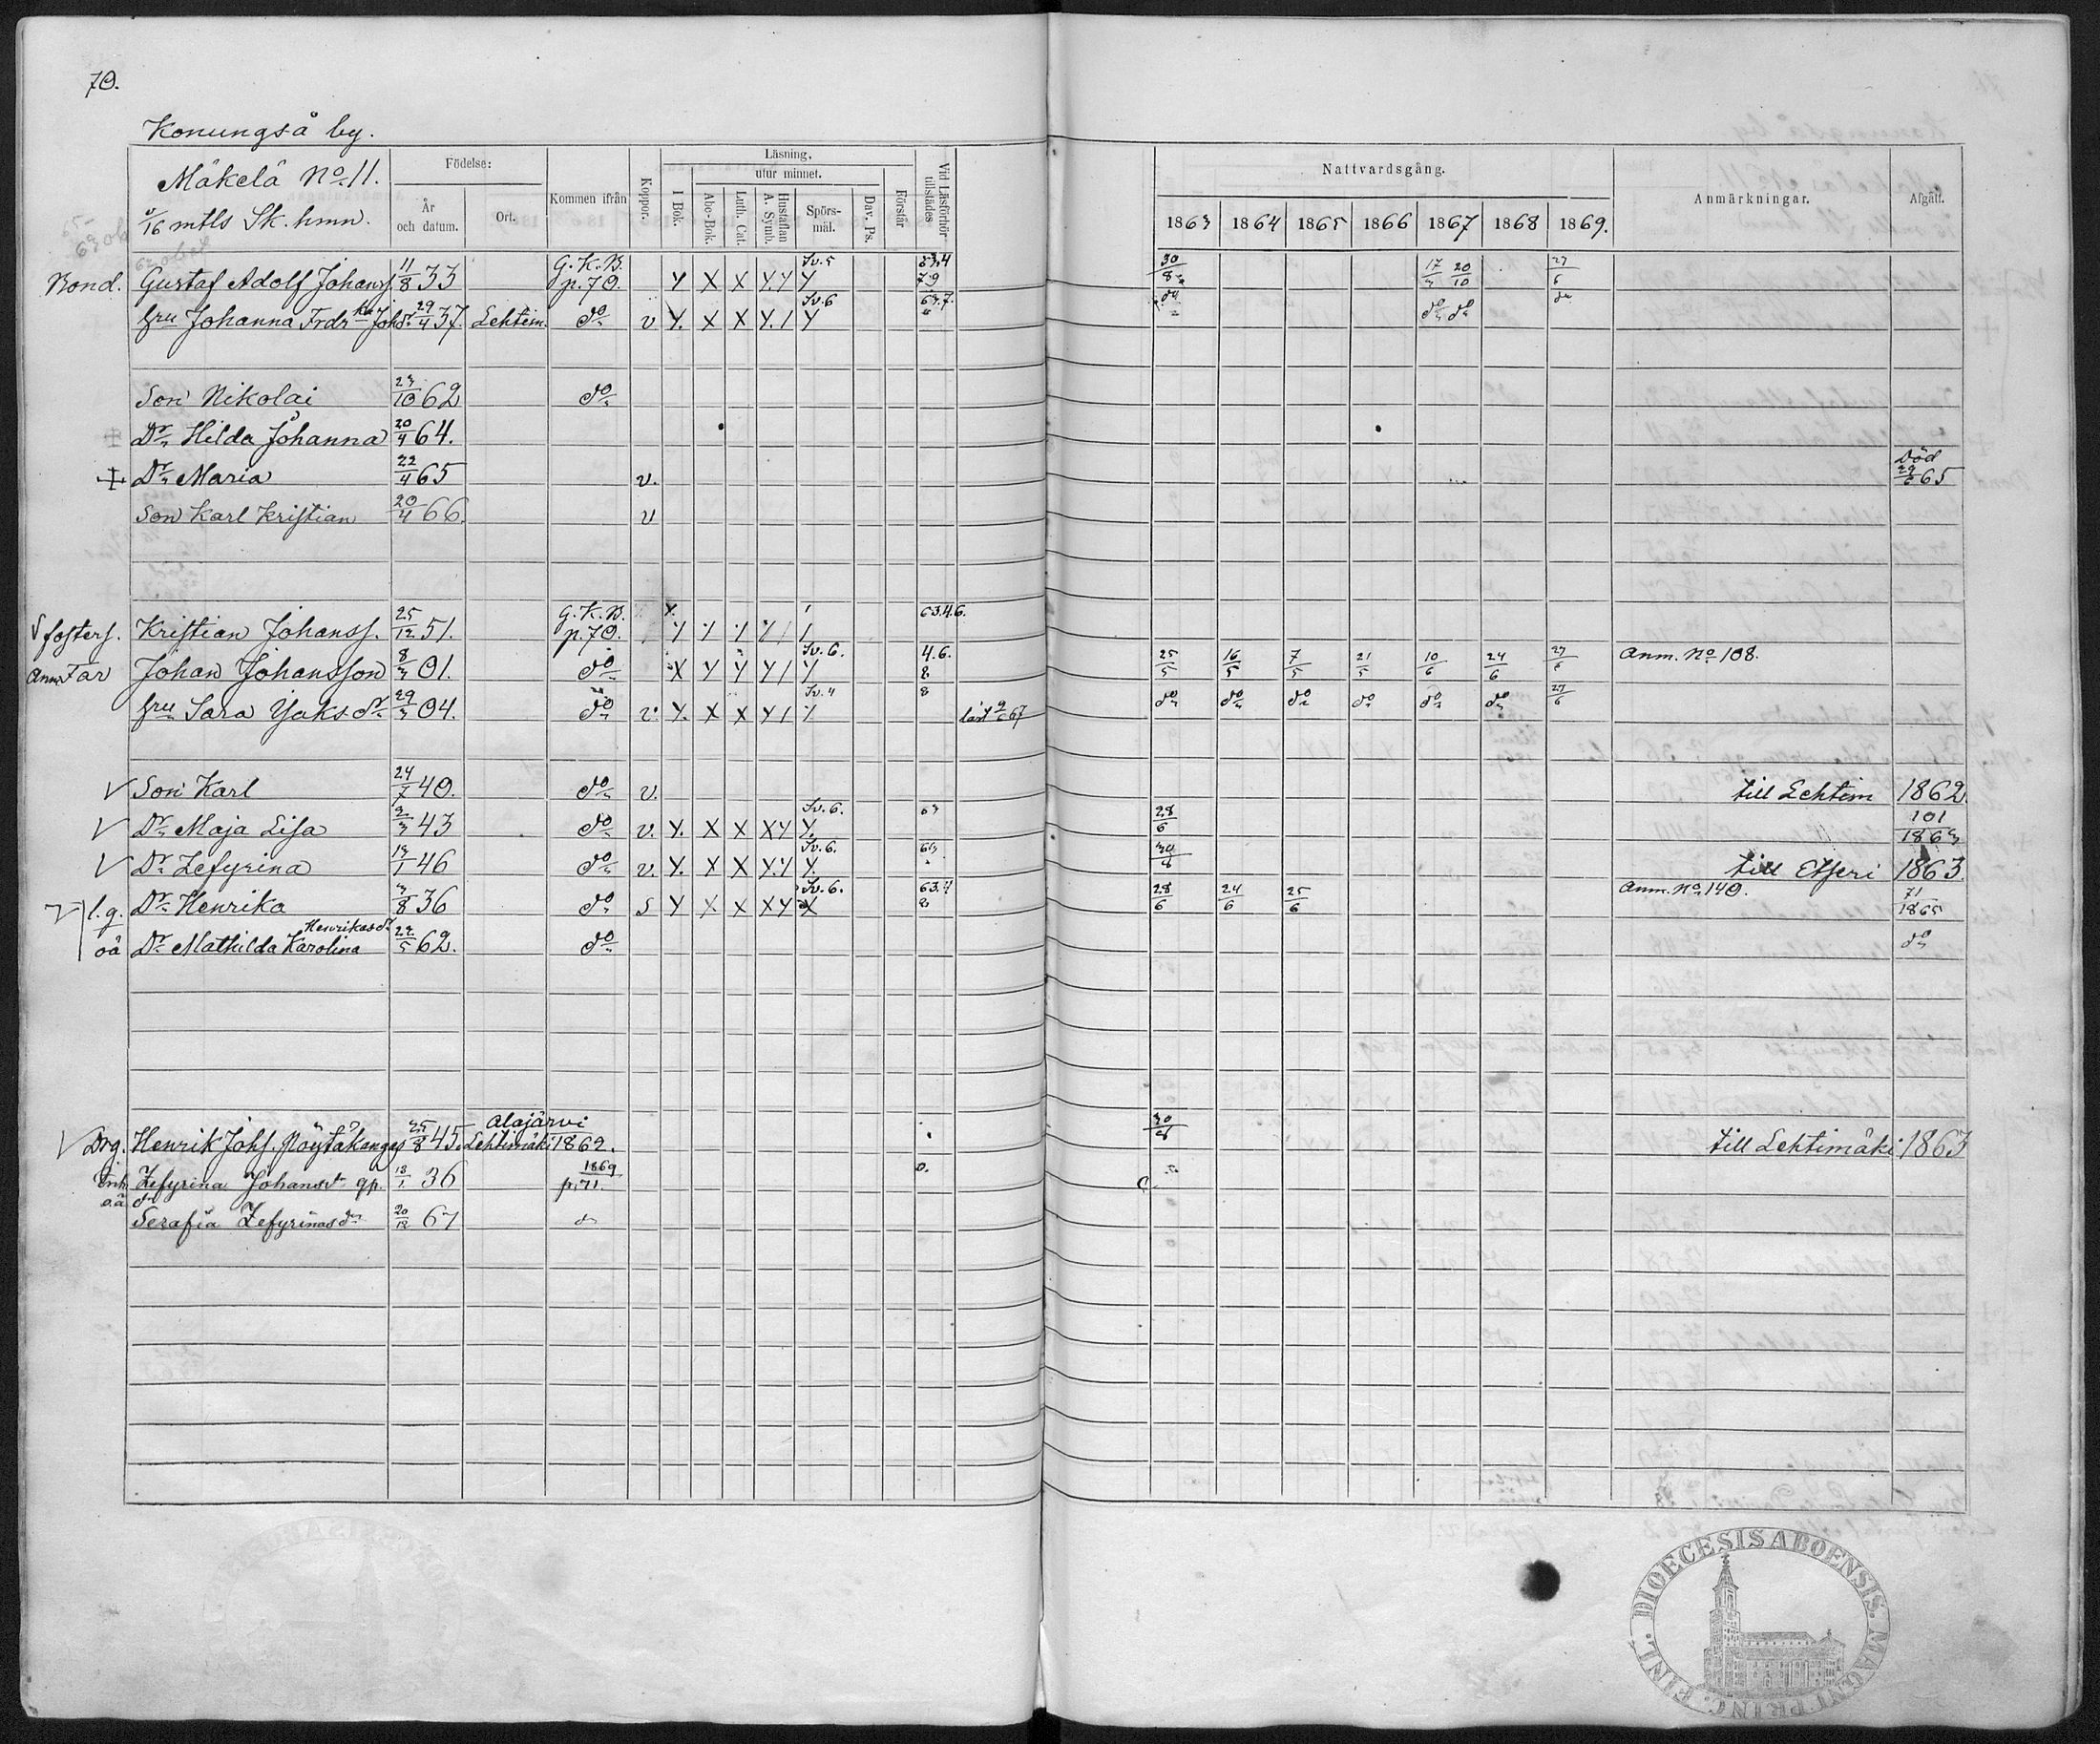 70.
Konungså by.
Mäkelä No. 11.
/16 mtls Sk. hmn.
Födelse:
År och datum.
Ort.
Kommen ifrån
Koppor.
Läsning.
I Bok.
utur minnet.
Abc-Bok.
Luth. Cat.
Hustaflan A. Symb.
Spörs-mål.
Dav. Ps.
Förstår
Vid Läsförhör tillstädes
Nattvardsgång.
1863 1864 1865 1866 1867 1868 1869.
Anmärkningar.
Afgått.
Bond. Gustaf Adolf Johanss. 11/8 33 G.K.B. p.70. Y X X Y.Y Sv.5 Y 30/8 20/10
hru Johanna Fredr.ka Joh.dr 29/4 37. Lehtim. do v Y. X X Y. / Sv.6 Y 63.7. do do do do
Son Nikolai 23/10 62 do
+ Dr Hilda Johanna 20/4 64.
+ Dr Maria 22/4 65 v. Död 29/6 65
Son Karl Kristian 20/4 66. v
fosters. Kristian Johanss. 25/12 51. G.K.B. p.70. 63.4.6.
Far Johan Johansson 8/3 01. do X Y Y Y / Sv.6. Y 4.6. 8 25/5 16/5 7/5 21/5 10/6 24/6 27/6 Anm. No 108.
hru Sara Jaks.dr 29/3 04. do v. Y. X X Y / Sv.4 Y 8 läst 9/6 67 do do do do do do 27/6
V Son Karl 24/7 40. do v. till Lehtim 1862.
V Dr Maja Lisa 2/3 43 do v. Y. X X X Y Sv.6. Y. 63 28/6 101 1863
V Dr Zefyrina 13/1 46 do v. Y. X X Y.Y Sv.6. Y. 63 30/8 till Etseri 1863.
V l.g. Dr Henrika 3/8 36 do S Y X X X Y Sv.6. X 63.4 8 28/6 24/6 25/6 Anm. No 140. 71 1865
oä Dr Mathilda Karolina Henrikasdr 22/5 62. do do
V Drg. Henrik Johs. Pöytäkangas 25/8 45. Alajärvi Lehtimäki 1862. 30/8 till Lehtimäki 1863
Zefyrina Johansdr gp. 13/1 36 1869 p.71.
oä dr Serafia Zefyrinasdr 20/12 67 do
DIOECESIS ABOENSIS. MAGNI PRINC. FINL.